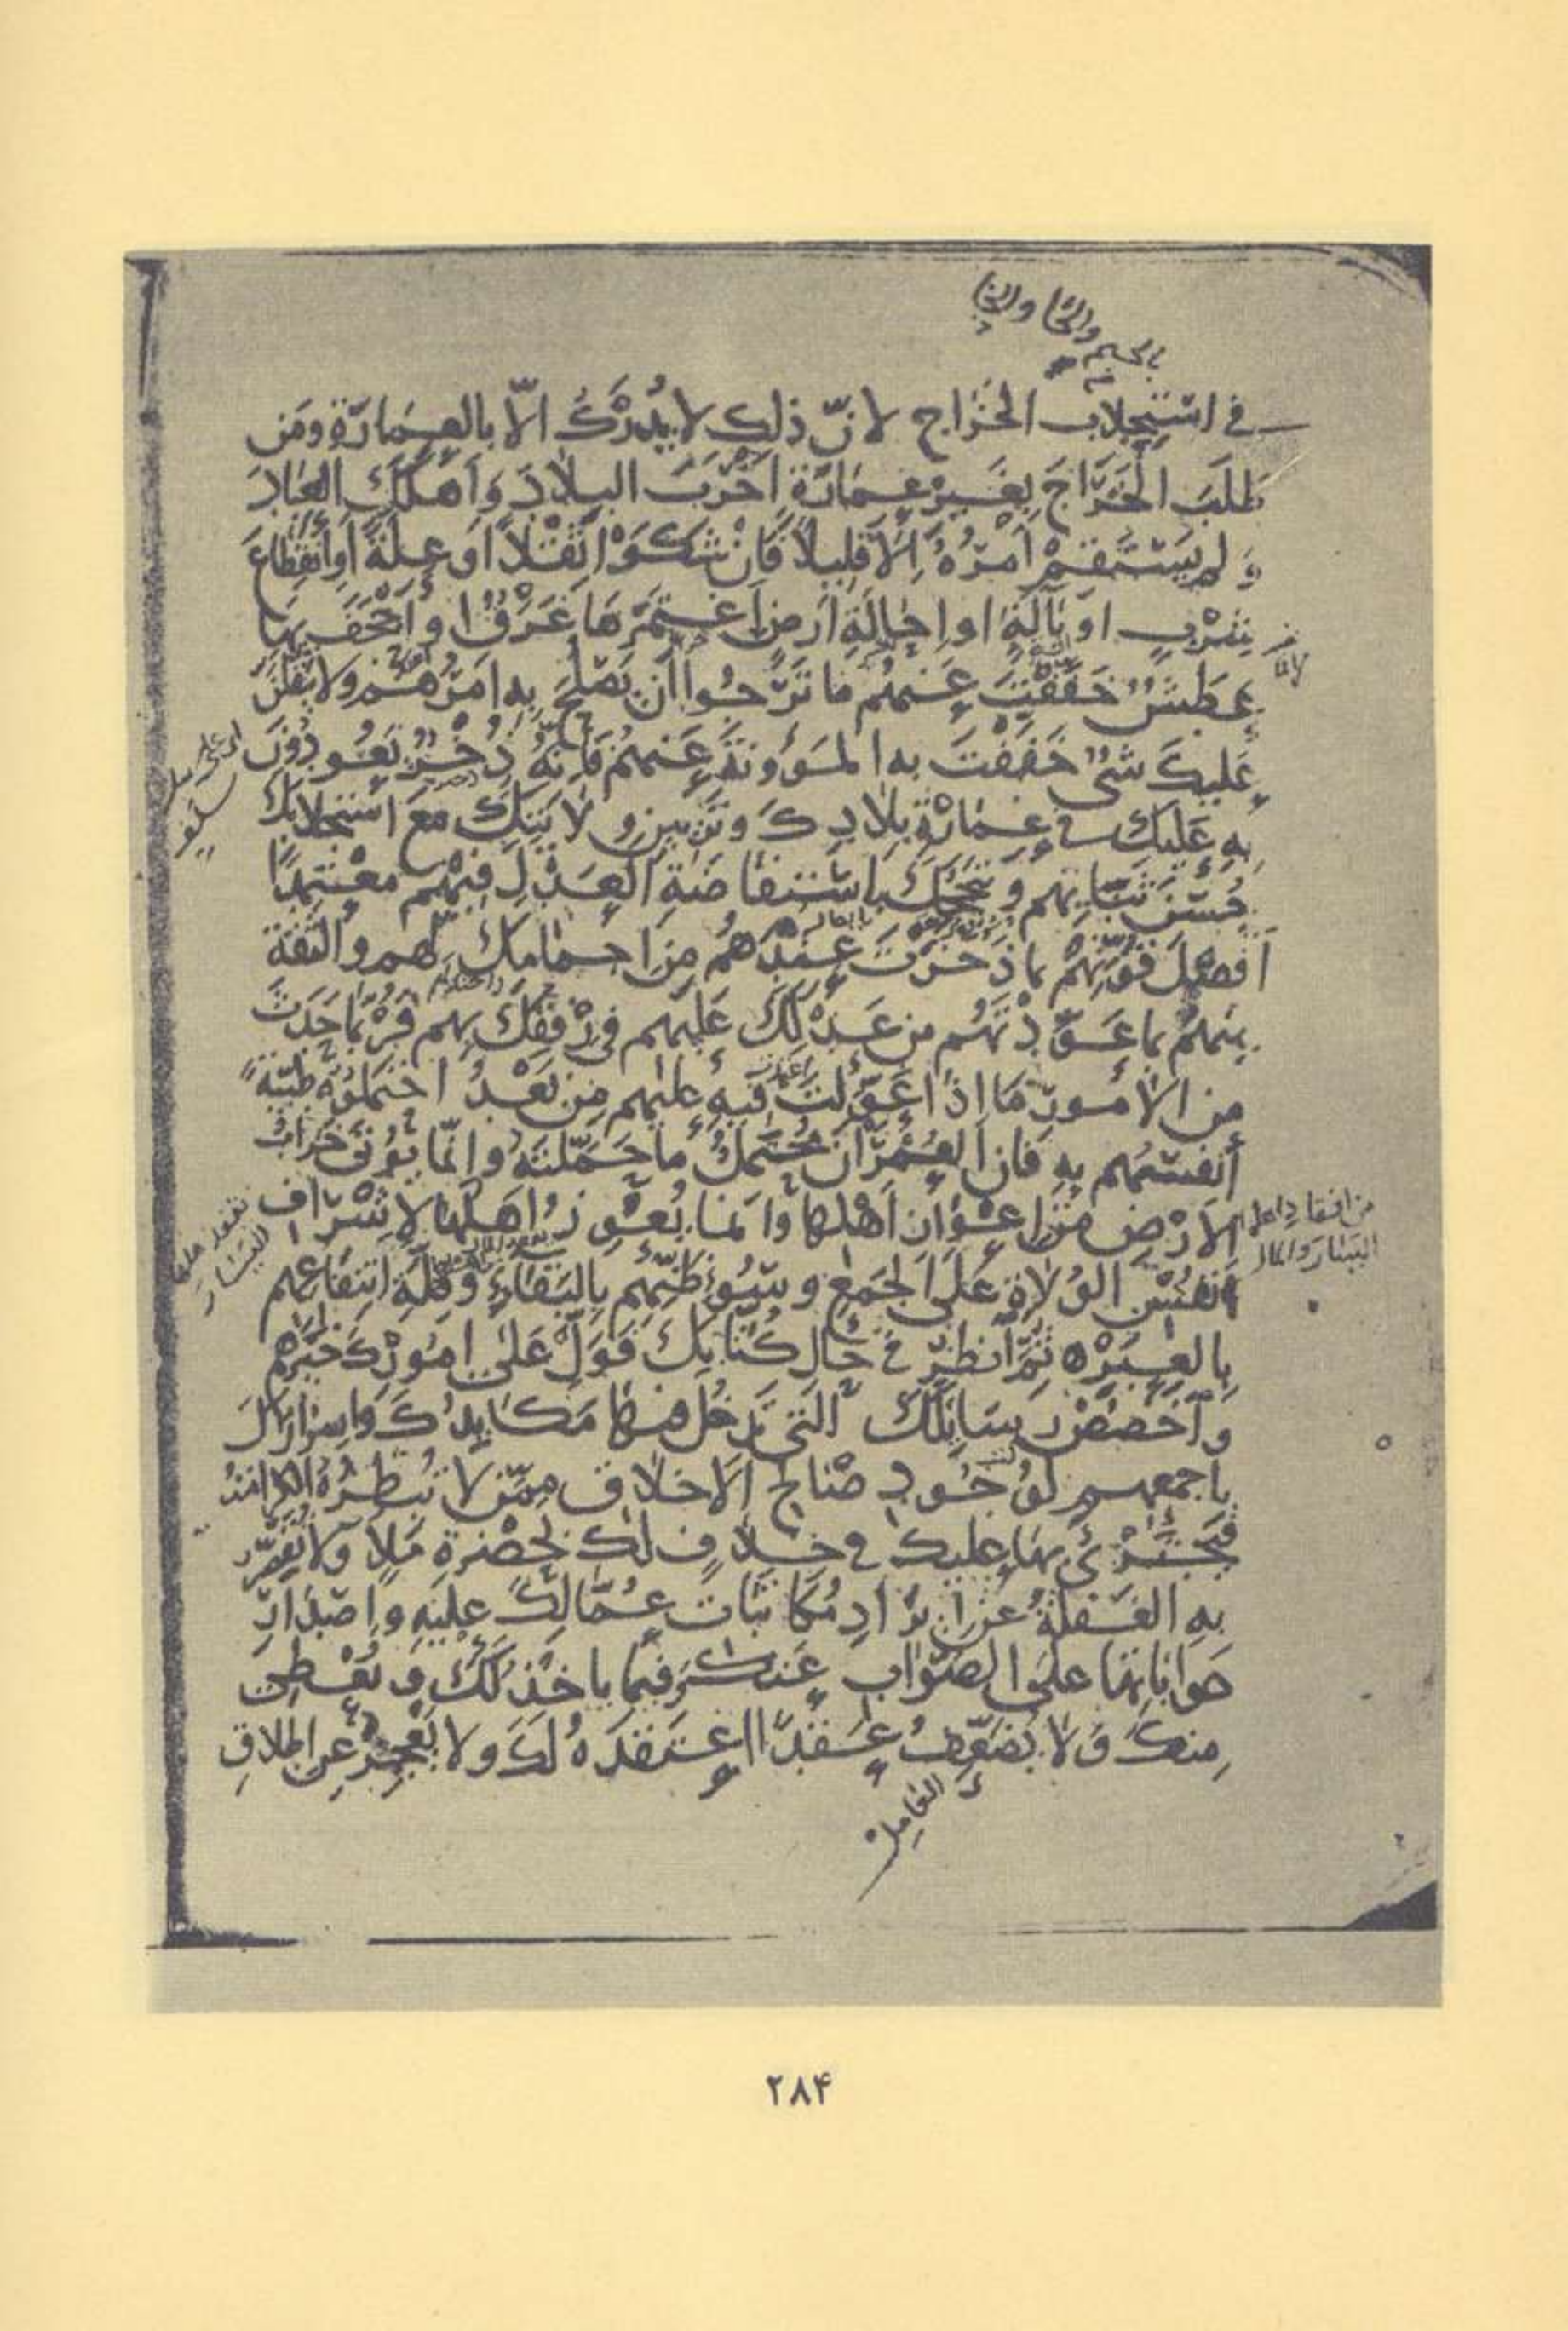 بالجيم والحا والخا
في استجلاب الخراج لأنّ ذلك لا يُدْرَكُ إلّا بالعِمَارَةِ ومَن
طَلَبَ الخَرَاجَ بِغَيرْ عِمَارَةٍ اَخْرَبَ البِلَادَ وَاَهلَكَ العِبَادَ
وَ لم يَسْتَقِمْ أمْرُهُ إلّا قَلِيلًا فَاِنْ شَكَوْا ثِقْلًا اَو عِلَّةً اَوِ انْقِطَاعَ
شِرْبٍ او بَالَّةٍ او اِحَالَةِ اَرضٍ اِغْتَمَرَهَا غَرَقٌ اوْ اَجْحَفَ بِهَا
عَطَشٌ خَفَّفْتَ عَنهُم مَا تَرْجُوا اَنْ يَصْلُحَ بِهِ اَمْرُهُم وَلا يَثْقُلَنَّ
عَلَيكَ شَىْءٌ خَفَّفْتَ به المَؤُونَةَ عَنهُمْ فَاِنَّهُ ذُخْرٌ يَعُودُونَ
بِهِ عَلَيكَ في عِمَارَةِ بِلادِكَ وتَزْيينِ وِلَايَتِكَ مَعَ اسْتِجْلابِكَ
حُسْنَ ثَنَائِهِم وَتَبَجُّحِكَ بِاسْتِفَاضَةِ العَدْلِ فِيهِمْ مُعْتَمِدًا
اَفضَلَ قُوَّتِهِمْ بما ذَخَرْتَ عِنْدَهُم مِن اِجمَامِكَ لَهم والثِّقَةَ
مِنهُمْ بما عَوَّدْتَهُم من عَدْلِكَ عَلَيهِم في رِفْقِكَ بِهِم فَرُبَّمَا حَدَثَ
مِن الأمُورِ مَا إذَا عَوَّلْتَ فِيهِ عَلَيهِم مِن بَعْدُ احتَمَلُوهُ طَيِّبَةً
أنفُسُهُم بِهِ فَاِنَّ العُمْرَانَ مُحْتَمِلٌ مَا حَمَّلْتَهُ واِنَّمَا يُؤتَى خَرَابُ
الاَرْضِ مِن اِعْوَازِ اَهْلِهَا وَاِنَّمَا يُعْوِزُ اَهلُهَا لِاِشْرَافِ
اَنفُسِ الوُلاةِ عَلَى الجَمعِ وسُوءِ ظَنِّهِم بِالبَقَاءِ وَقِلَّةِ انتِفَاعِهِم
بِالعِبَرْ ه ثُمَّ انظُرْ في حَالِ كُتَّابِكَ فَوَلِّ عَلى اُمُورِكَ خَيرَهُم
وَاخْصُصْ رَسَائِلَكَ الَّتي تُدْخِلُ فيهَا مَكَايِدَكَ واسرَارَكَ
بِاَجمَعِهِم لِوُجُودِ صَالِحِ الاَخلَاقِ مِمَّن لا تُبْطِرُهُ الكَرَامَةُ
فَيَجْتَرِئَ بِهَا عَلَيكَ في خِلَافٍ لَكَ بِحَضْرَةِ مَلَإٍ وَلا تُقَصِّرُ
بِهِ الغَفْلَةُ عَن اِيْرَادِ مُكَاتَبَاتِ عُمَّالِكَ عَلَيْهِ وَاِصدَارِ
جَوَابَاتِهَا عَلَى الصَّوَابِ عَنكَ وفِيمَا يَاخُذُ لَكَ وَيُعْطِى
مِنكَ وَلا يُضَعِّفُ عَقْدًا اعتَقَدَهُ لَكَ وَلا يَعجِزُ عَن اِطلاقِ
العَامِل
٢٨۴